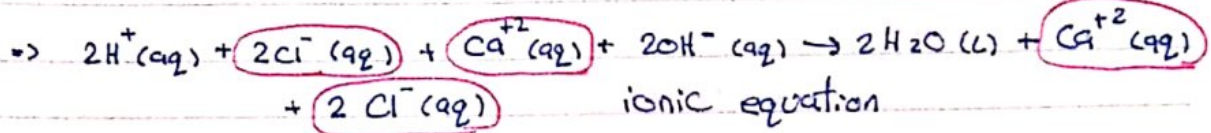 => 2H⁺(aq) + 2Cl⁻(aq) + Ca⁺²(aq) + 2OH⁻(aq) → 2H₂O(L) + Ca⁺²(aq)
+ 2Cl⁻(aq) ionic equation